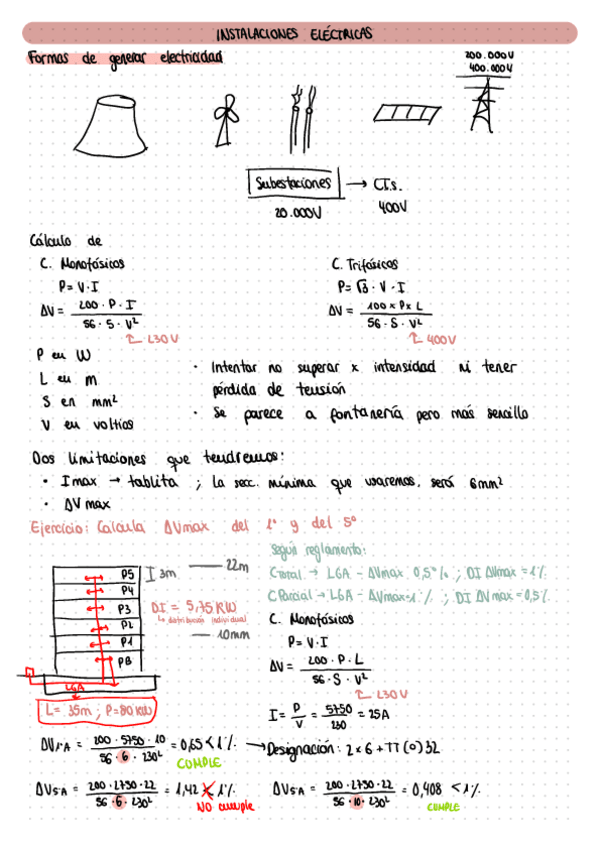 INSTALACIONES ELÉCTRICAS
Formas de generar electricidad
200.000V
400.000V
Subestaciones → CTs.
20.000V
400V
Cálculo de
C. Monofásicos
P = V · I
ΔV = 200 · P · I / 56 · S · V²
230V
C. Trifásicos
P = √3 · V · I
ΔV = 100 × P × L / 56 · S · V²
400V
P en W
L en m
S en mm²
V en voltios
· Intentar no superar x intensidad ni tener
pérdida de tensión
· Se parece a fontanería pero más sencillo
Dos limitaciones que tendremos:
· I max → tablita ; la secc. mínima que usaremos, será 6mm²
· ΔV max
Ejercicio: Calcula ΔVmax del 1º y del 5º
P5
P4
P3
P2
P1
PB
3m
22m
DI = 5,75 KW
↳ distribución individual
10mm
LGA
L = 35m ; P=80KW
Según reglamento:
C Total → LGA - ΔVmax 0,5% ; DI ΔVmax = 1%
C Parcial → LGA - ΔVmax=1% ; DI ΔVmax = 0,5%
C. Monofásicos
P = V · I
ΔV = 200 · P · L / 56 · S · V²
230V
I = P / V = 5750 / 230 = 25A
ΔV1ºA = 200 · 5750 · 10 / 56 · 6 · 230² = 0,65 < 1% → Designación: 2×6+TT(o)32
CUMPLE
ΔV5ºA = 200 · 5750 · 22 / 56 · 6 · 230² = 1,42 < 1%
NO cumple
ΔV5ºA = 200 · 5750 · 22 / 56 · 10 · 230² = 0,408 < 1%
CUMPLE